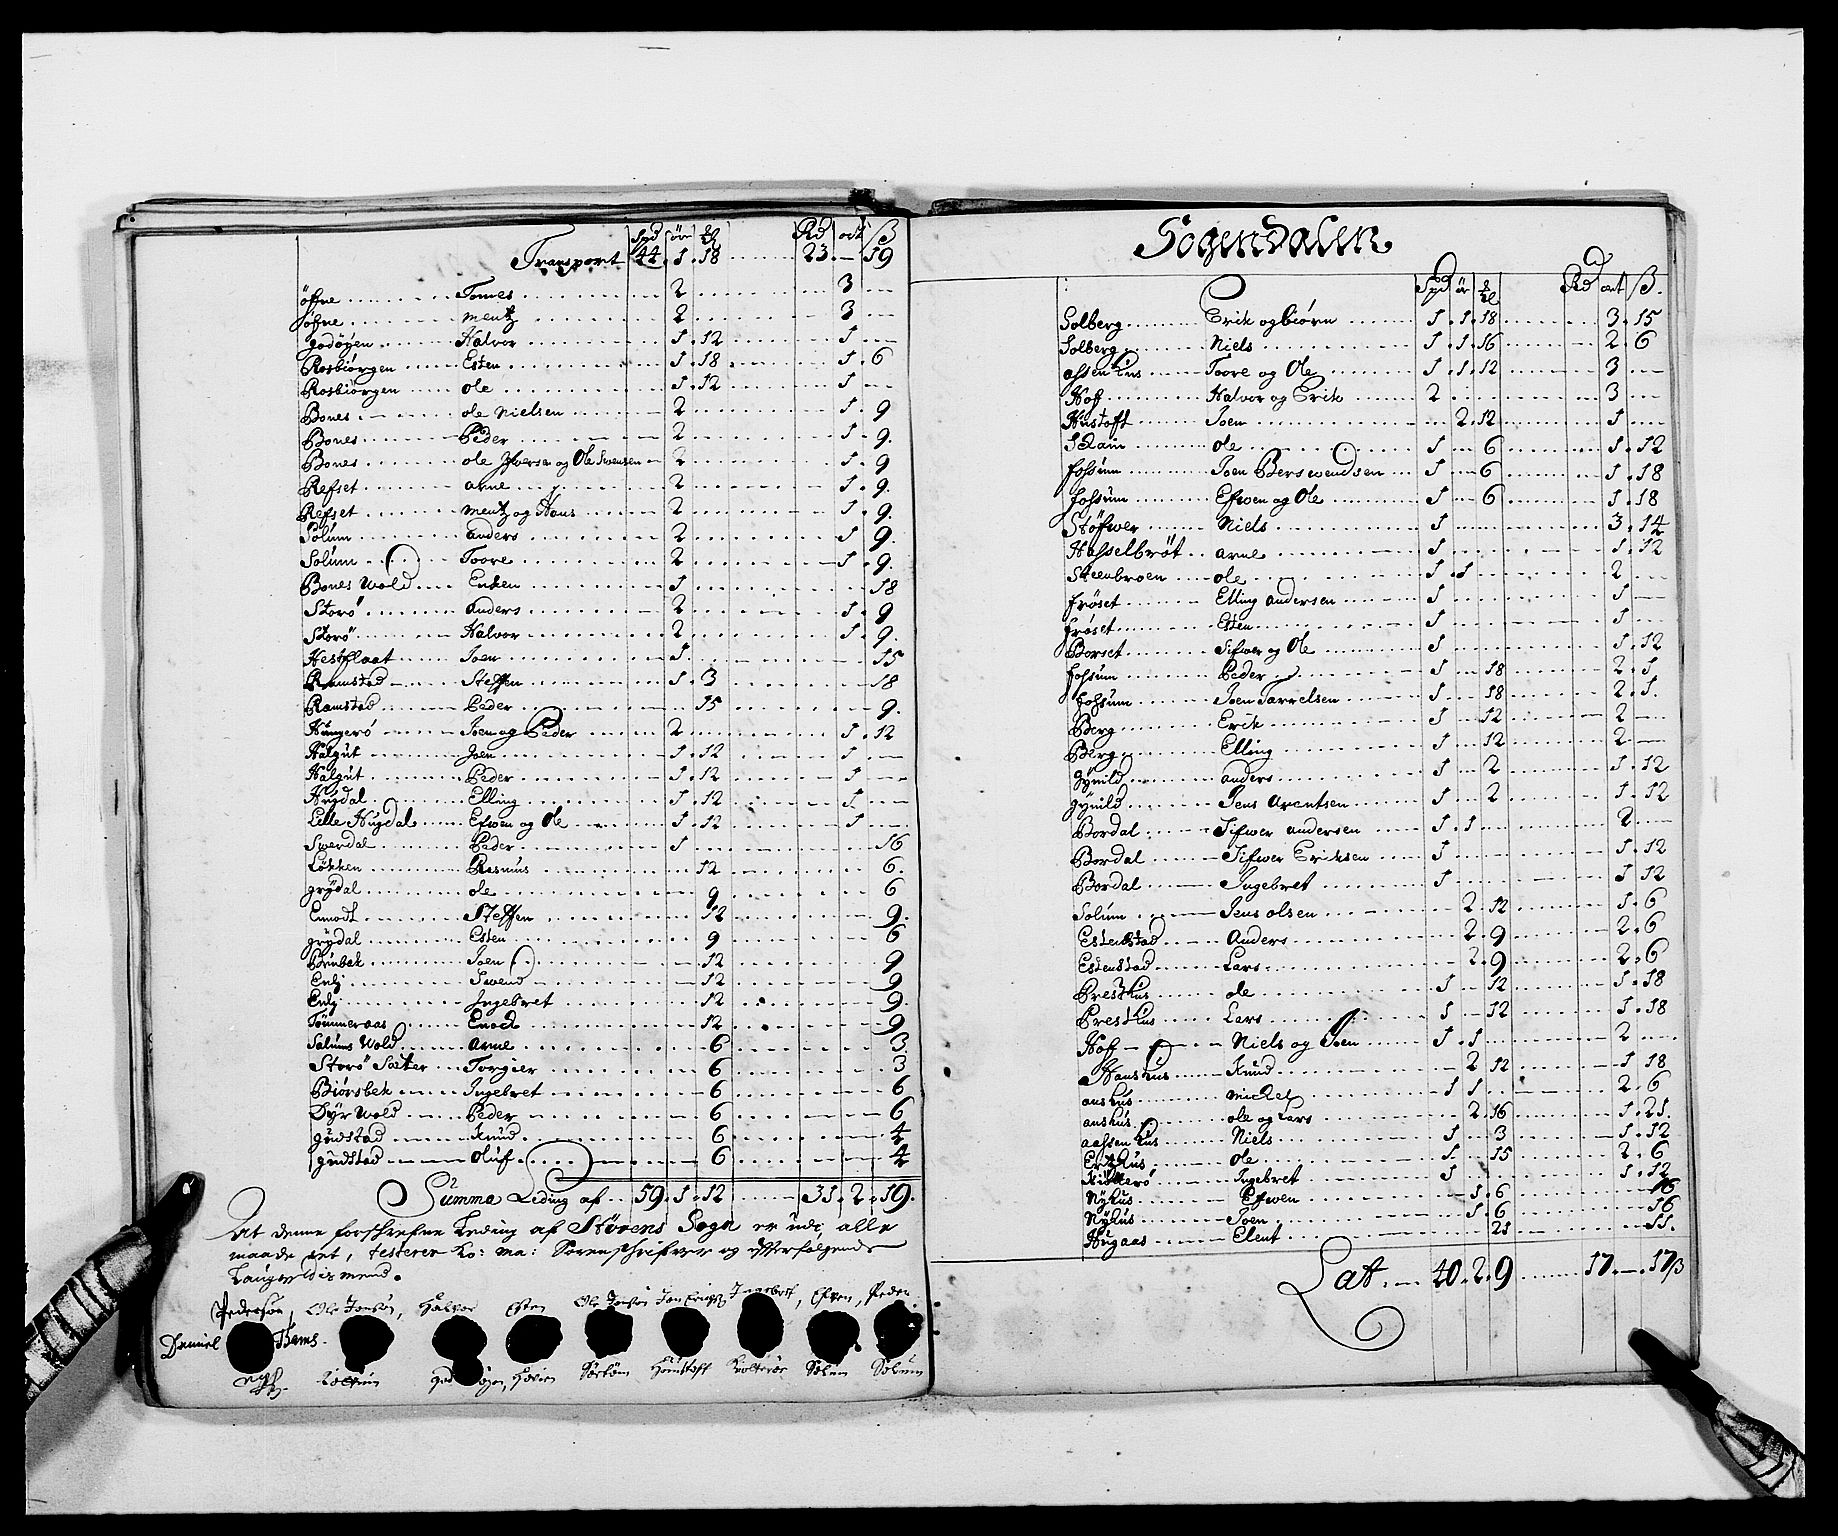 Spd ør ℔ Rd ort β
Transport 44. 1. 18 23. — 19
öfne Tomes 2 3
öfne mentz 2 3
godöyen Halvor 1. 12 1
Rosbiörgen Esten 1. 18 1. 6
Rosbiörgen ole 1. 12 1
Bones ole Nielsen 2 1. 9
Bones Peder 2 1. 9.
Bones ole Jfversen og Ole Swensen 2 1. 9
Refset arne 2 1. 9.
Refset mentz og Hans 2 1. 9.
Solüm anders 2 1 9.
Solüm Toore 2 1. 9.
Bones Wold Enken 1 18
Storö anders 2 1. 9
Storö Halvor 2 1. 9.
Hestflaat Joen 1 15
Ramstad Steffen 1. 3 18
Ramstad Peder 15 9.
Hüngerö Joen og Peder 2 1. 12
Halgüt Joen 1. 12 1
Halgüt Peder 1. 12 1
Hügdal Elling 1. 12 1
Lille Hugdal Efwen og Ole 1. 12 1
Swerdal Peder 1 16
Lökken Rasmus 12 6.
grÿdal ole 9 6
Emodt Steffen 12 9.
grÿdal Esten 9 6
Brubek Joen 12 9
Enlj Swend 12 9
Enlj Jngebret 12 9.
Tömmeraas Enock 12 9
Solums Wold Arne 6 3
Storö Sæter Torgier 6 3
Biörsbek Jngebret 6 6
Dyr Wold Peder 6 6
güdstad Knud 6 4
güdstad Oluf 6 4
Summa Leding af 59. 1. 12 31. 2. 19.
At denne forskrefne Leding af Störens Sogn er udj alle
maade ret, testerer Ko: Ma: Sorenschrifwer og efterfølgende
Laugrettismend.
Pedersön, Ole Jonsön, Halvor Esten Ole Jonsön Jon Ingebret, Efven, Peder
Daniel Thams
Solum Hovin Sörköm Haustoft Solum Solum
Sogendalen
Spd ör ℔ Rd ort β.
Solberg Erik og biörn 1. 1. 18 3. 15
Solberg Niels 1. 1. 16 2. 6
assenhus Toore og Ole 1. 1. 12 3
Hof Halvor og Erik 2 3
Hustoft Joen 2. 12 1
Skain ole 1 6 1. 12
fossum Joen Berswendsen 1 6 1. 18
fossum Efwen og Ole 1 6 1. 18
Stöfwer Niels 1 3. 14
Hasselbröt arne 1 1. 12
Steenbroen ole 1. 1 2
fröset Elling andersen 1 1
fröset Esten 1 1
Borset Sifwer og Ole 1 1. 12
fossum Peder 1 18 2. 1
fossum Joen Tarrelsen 1 18 2. 1.
Berg Erik 1 12 2
Berg Elling 1 12 2
gynild anders 1 2 1. 12
gynild Jens Arentsen 1 2 1. 12
Bordal Sifwer andersen 1. 1 2
Bordal Sifwer Eriksen 1 1. 12
Bordal Jngebret 1 1 12
Solum Jens olsen 2. 12 1. 6
Estenstad Anders 2. 9 2. 6
Estenstad Lars 2. 9 2. 6
Presthus ole 1 12 1. 18
Presthus Lars 1 12 1. 18
Hof Niels og Joen 1. 1 2
Hanshus Knud 2 12 1 18
anshus michel 1 1 2. 6
anshus ole og Lars 2. 16 1. 21.
aassenhus Niels 1 3 1. 12
Erikhus Ole 1 15 2. 6
Kiölterö Jngebret 1 1. 12
Nÿhus Efwen 1. 6 16
Nÿhus Joen 1. 6 16
Hugaas Elent 21 11.
Lat. 40. 2. 9 17. — 17β